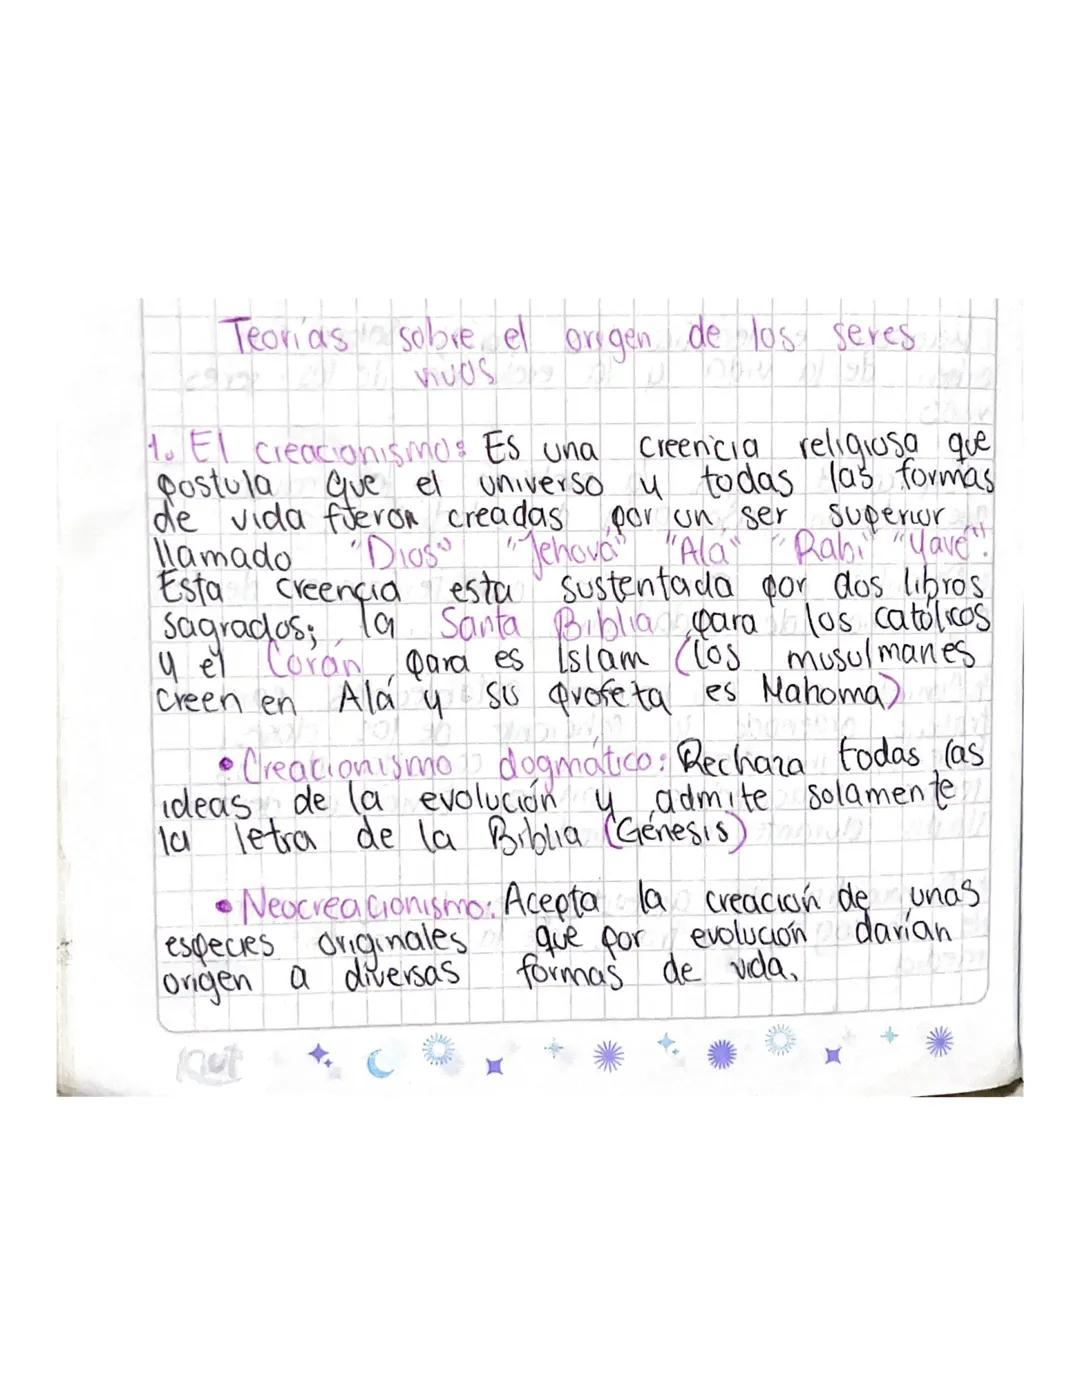 Teorías sobre el origen de los seres
vivos
1. El creacionismo: Es una creencia religiosa que
postula que el universo y todas las formas
de vida fueron creadas por un ser superior
llamado "Dios" "Jehová" "Alá" "Rabi" "Yavé".
Esta creencia esta sustentada por dos libros
sagrados; la Santa Biblia para los católicos
y el Corán para es Islam (los musulmanes
creen en Alá y su profeta es Mahoma)
• Creacionismo dogmático: Rechaza todas las
ideas de la evolución y admite solamente
la letra de la Biblia (Génesis)
• Neocreacionismo: Acepta la creación de unas
especies originales que por evolución darían
origen a diversas formas de vida.